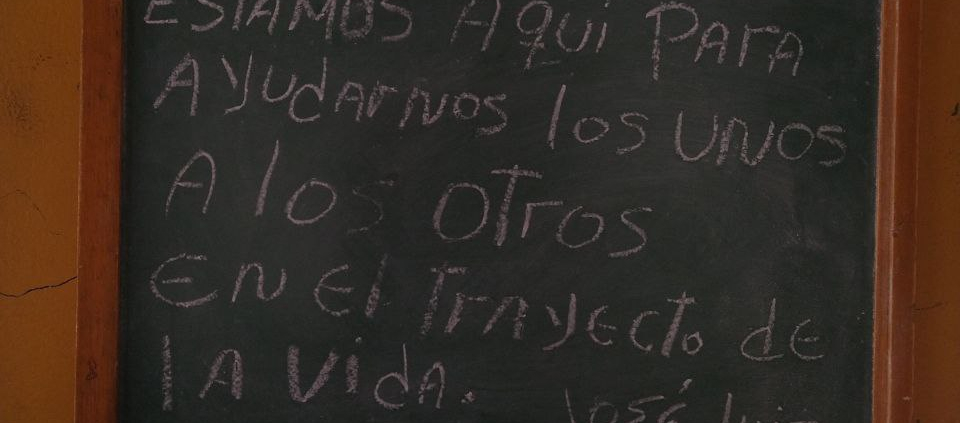 ESTAMOS AQUÍ PARA
AYUDARNOS los UNOS
A los OTROS
EN El TRAYECTO dE
lA VidA.
José luis